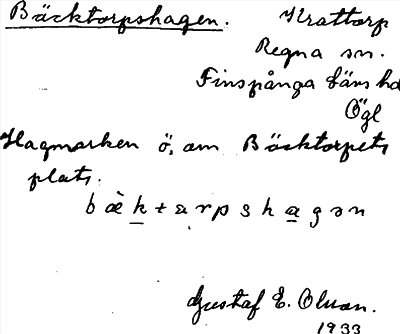 Bäcktorpshagen. Krattorp
Regna sn.
Finspånga läns hd
Ögl
Hagmarken ö. om Bäcktorpets
plats.
bæ̀ktarpshagən
Gustaf E. Olsson.
1933